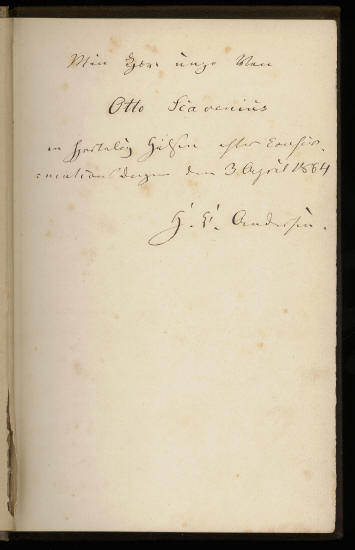 Min kjære unge Ven
Otto Scavenius
en hjertelig Hilsen efter Confir-
mationsdagen den 3 April 1864
H. C. Andersen.